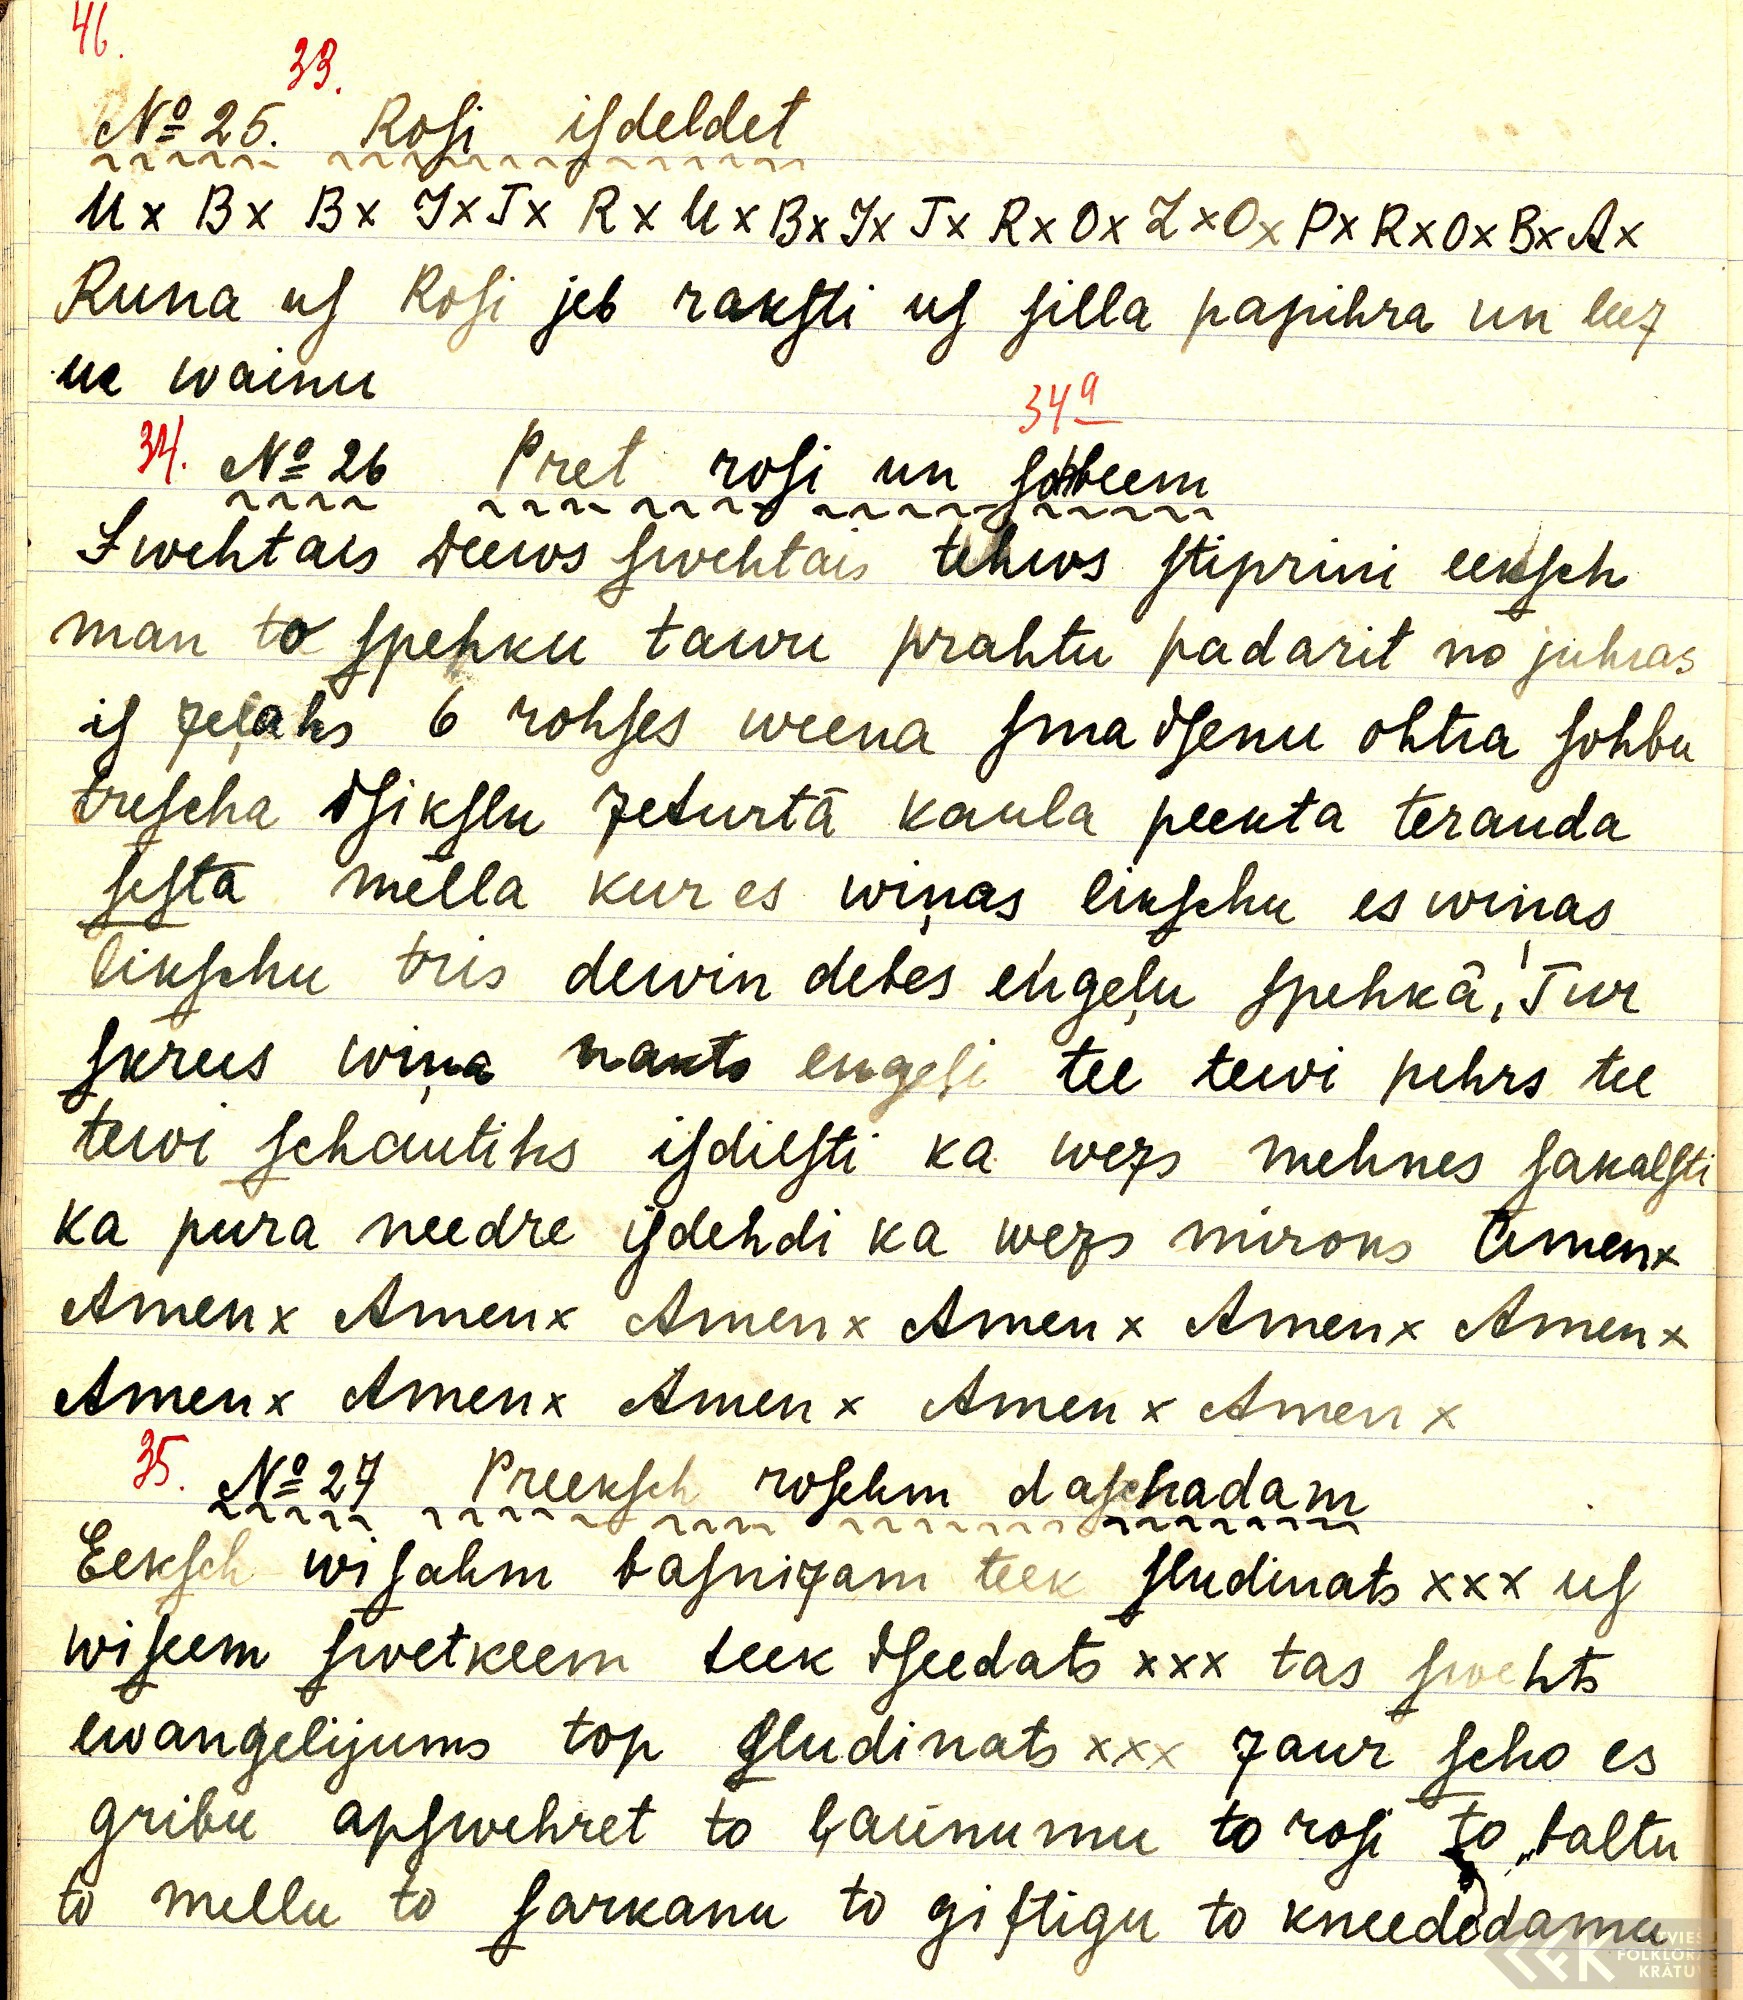 46.
33.
№ 25. Roſi iſdeldet
U x B x B x J x J x R x U x B x J x J x R x O x Z x O x P x R x O x B x A x
Runa uſ Roſi jeb rakſti uſ ſilla papihra un leez
uc wainu
34ª
34. № 26 Pret roſi un ſohbeem
Swehtais Deews ſwehtais tehws ſtiprini eekſch
man to ſpehku tawu prahtu padarit no juhras
iſ zeļahs 6 rohſes weena ſmadſenu ohtra ſohbu
treſcha dſikſlu zeturtā kaula peekta terauda
ſeſtā mella kur es wiņas likſchu es wiņas
likſchu tris dewin debes eņģeļu ſpehkā, Tur
ſkrees wiņa nakts engeli tee tewi pehrs tee
tewi ſchautihs iſdilſti ka wezs mehnes ſakalſti
ka pura needre iſdehdi ka wezs mirons Amen x
Amen x Amen x Amen x Amen x Amen x Amen x
Amen x Amen x Amen x Amen x Amen x
35. № 27 Preekſch roſehm daſchadam
Eekſch wiſahm baſnizam teek ſludinats xxx uſ
wiſeem ſwetkeem teek dſeedats xxx tas ſwehts
ewangelijums top ſludinats xxx zaur ſcho es
gribu apſwehret to ļaunumu to roſi to baltu
to mellu to ſarkanu to giftigu to kneededamu
LATVIEŠU
FOLKLORAS
KRĀTUVE